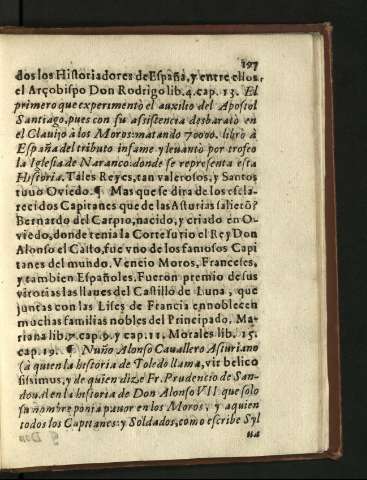 197
dos los Historiadores de España, y entre ellos
el Arçobispo Don Rodrigo lib. 4. cap. 13. El
primero que experimentò el auxilio del Apostol
Santiago, pues con su assistencia desbaratò en
el Clauijo à los Moros: matando 70000. librò à
España del tributo infame y leuantò por trofeo
la Iglesia de Naranco: donde se representa esta
Historia. Tales Reyes, tan valerosos, y Santos
tuuo Oviedo. ¶ Mas que se dira de los escla-
recidos Capitanes que de las Asturias salierõ?
Bernardo del Carpio, nacido, y criado en O-
viedo, donde tenia la Corte su tio el Rey Don
Alonso el Casto, fue vno de los famosos Capi
tanes del mundo. Vencio Moros, Franceses,
y tambien Españoles. Fueron premio de sus
vitorias las llaues del Castillo de Luna, que
juntas con las Lises de Francia ennoblecen
muchas familias nobles del Principado. Ma-
riana lib. 7. cap. 9. y cap. 11. Morales lib. 15.
cap. 19. ¶ Nuño Alonso Cauallero Asturiano
à quien la historia de Toledo llama, vir belico
sissimus, y de quien dize Fr. Prudencio de San-
doual en la historia de Don Alonso VII que solo
su nombre ponia pauor en los Moros, y a quien
todos los Capitanes y Soldados, como escribe Syl
ua